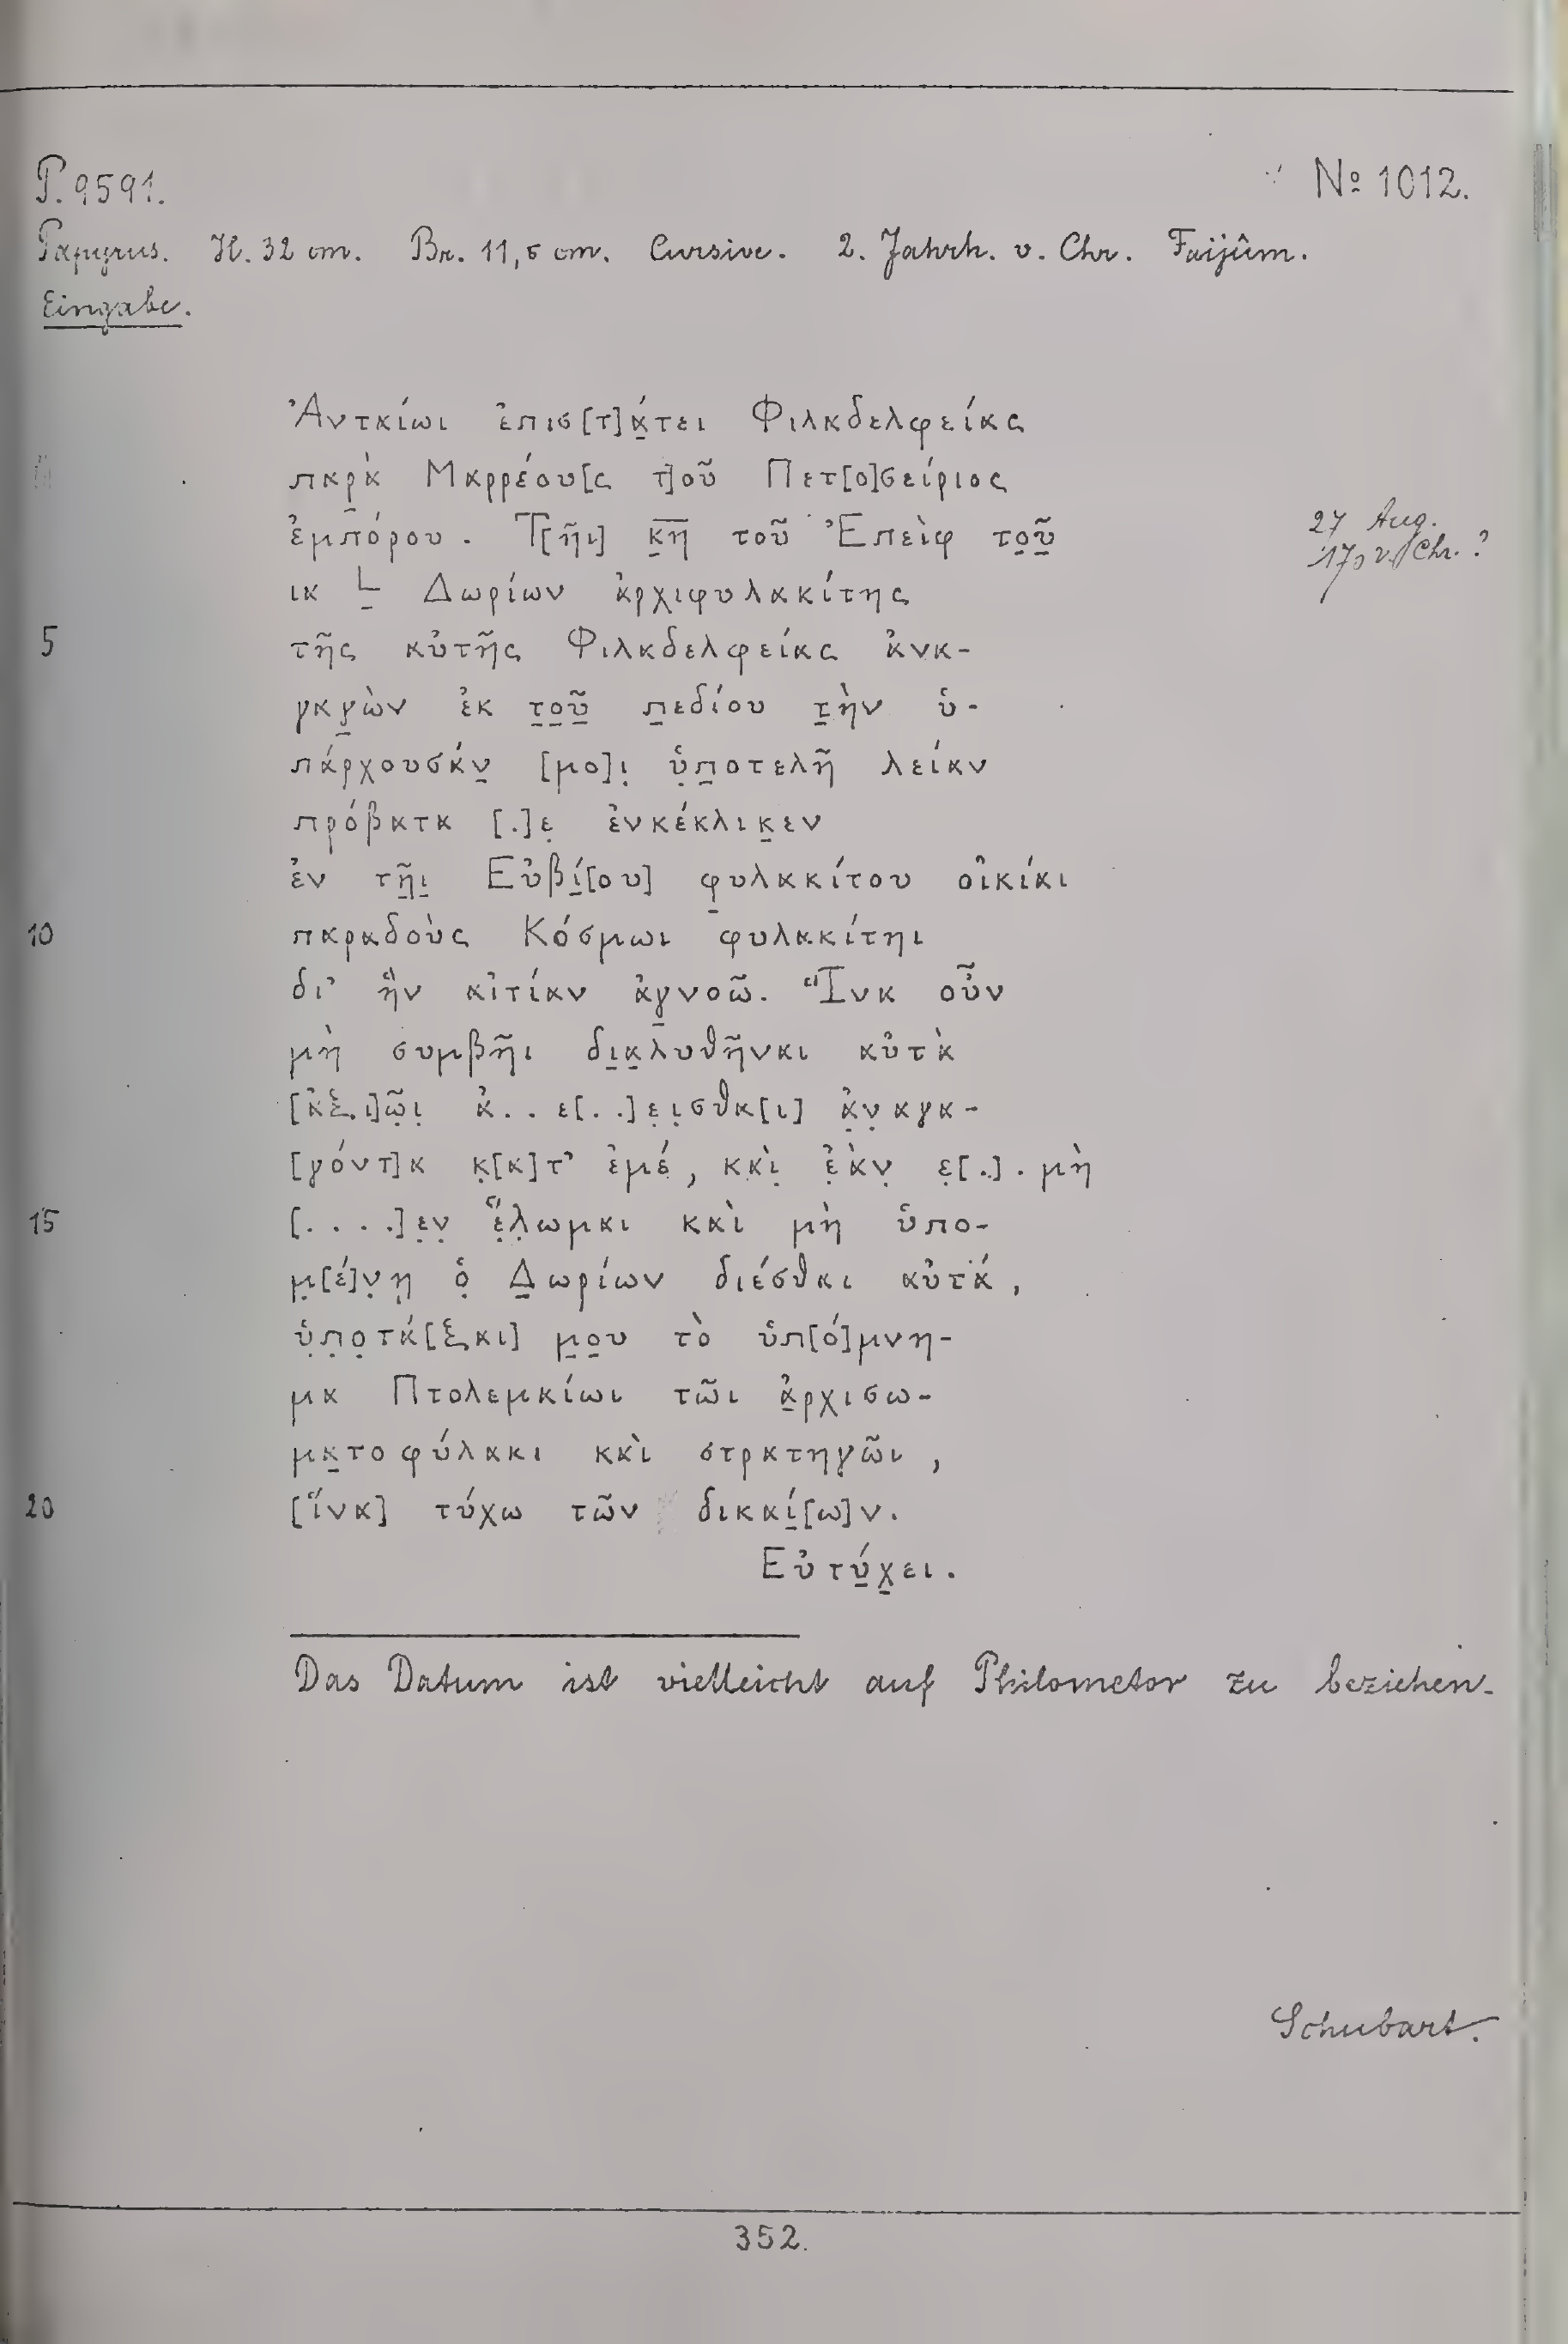 P. 9591. Nº 1012.
Papyrus. H. 32 cm. Br. 11,5 cm. Cursive. 2. Jahrh. v. Chr. Faijûm.
Eingabe.
Ἀνταίωι ἐπισ[τ]ά̣τει Φιλαδελφείας
παρ̣ὰ Μαρρέου[ς τ]οῦ Πετ[ο]σείριος
ἐμπόρου. Τ[ῆι] κ̣η̅ τοῦ Ἐπεὶφ το̣ῦ̣ 27 Aug.
ια Ḷ Δωρίων ἀρχιφυλακίτης 170 v. Chr. ?
5 τῆς αὐτῆς Φιλαδελφείας ἀνα-
γαγ̣ὼν ἐκ τ̣ο̣ῦ̣ π̣εδίου τ̣ὴν ὑ-
πάρχουσάν̣ [μο]ι̣ ὑ̣π̣οτελῆ λείαν
πρόβατα [.]ε̣ ἐνκέκλικ̣εν
ἐν τῆ̣ι̣ Εὐβί̣[ου] φ̣υλακίτου οἰκίαι
10 παραδοὺς Κόσμωι φυλακίτηι
δι’ ἣν αἰτίαν ἀγ̣νοῶ. Ἵνα οὖν
μὴ συμβῆι δι̣α̣λυθῆναι αὐτὰ
[ἀξι]ῶ̣ι̣ ἀ̣..ε[..]ε̣ι̣σθα[ι] ἀ̣ν̣αγα-
[γόντ]α κ̣[α]τ’ ἐμέ, καὶ̣ ἐ̣ὰν̣ ε̣[.].μὴ
15 [....]ε̣ν̣ ἕ̣λ̣ωμαι καὶ μὴ ὑπο-
μ̣[έ]ν̣η̣ ὁ̣ Δ̣ωρίων διέσθαι αὐτά,
ὑ̣π̣ο̣τά[ξαι] μ̣ο̣υ τὸ ὑπ[ό]μνη-
μα Πτολεμαίωι τῶι ἀ̣ρχισω-
μα̣τοφύλακι καὶ στρατηγῶι,
20 [ἵνα] τύχω τῶν δικαί̣[ω]ν.
Εὐτύ̣χ̣ει.
Das Datum ist vielleicht auf Philometor zu beziehen.
Schubart.
352.